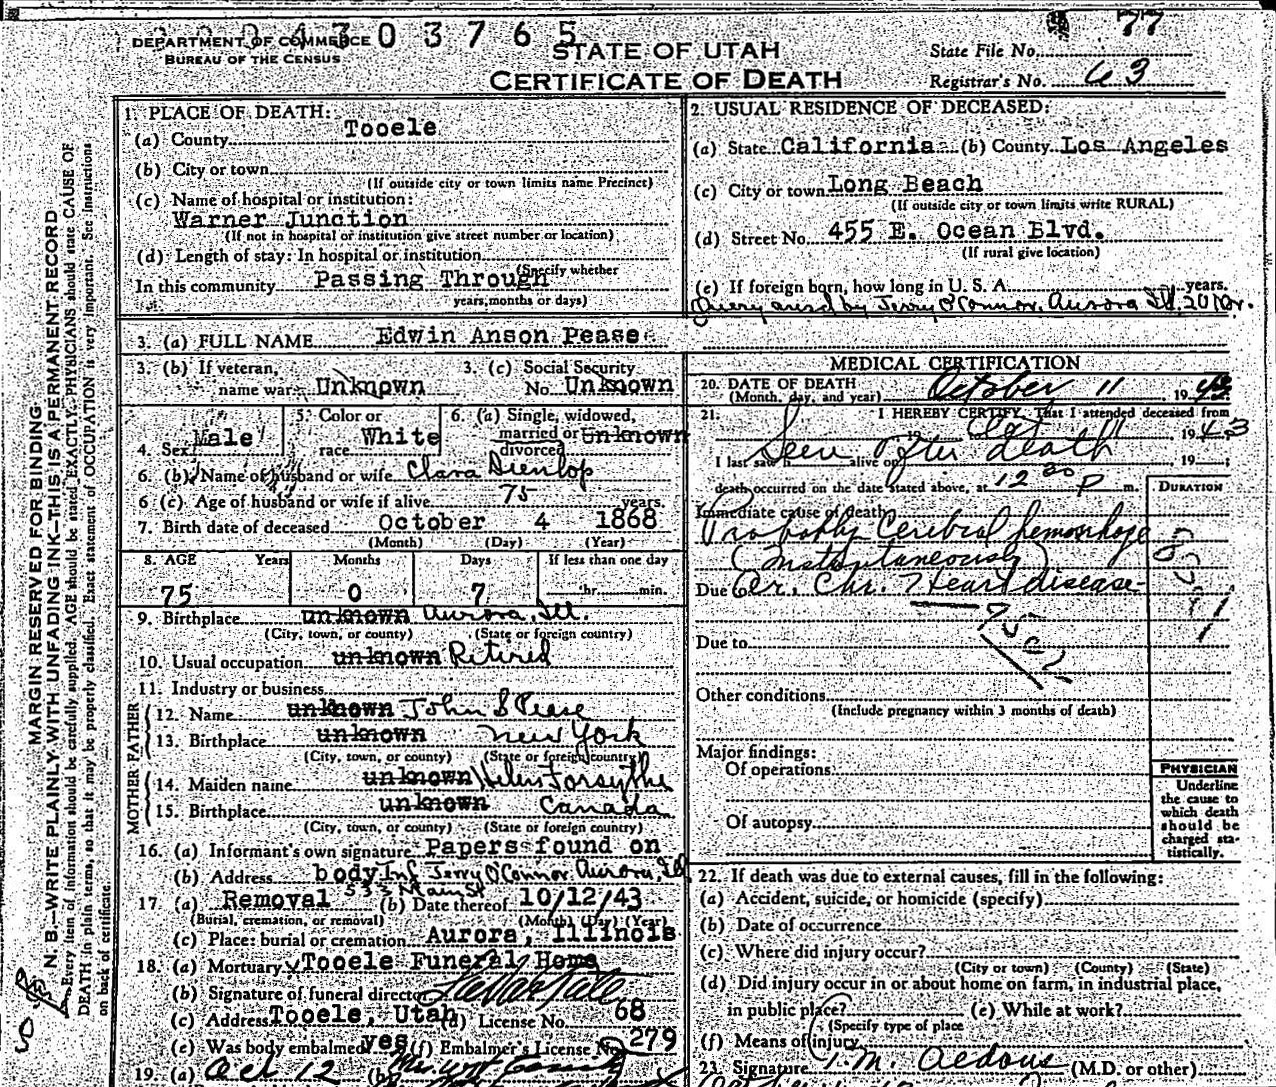 2 0 0 4 3 0 3 7 6 5
DEPARTMENT OF COMMERCE
BUREAU OF THE CENSUS
STATE OF UTAH
CERTIFICATE OF DEATH
State File No. 77
Registrar's No. 63
MARGIN RESERVED FOR BINDING
N. B.—WRITE PLAINLY, WITH UNFADING INK—THIS IS A PERMANENT RECORD
Every item of information should be carefully supplied. AGE should be stated EXACTLY. PHYSICIANS should state CAUSE OF
DEATH in plain terms, so that it may be properly classified. Exact statement of OCCUPATION is very important. See Instructions
on back of certificate.
1. PLACE OF DEATH:
(a) County Tooele
(b) City or town
(If outside city or town limits name Precinct)
(c) Name of hospital or institution:
Warner Junction
(If not in hospital or institution give street number or location)
(d) Length of stay: In hospital or institution
(Specify whether
In this community Passing Through
years, months or days)
2. USUAL RESIDENCE OF DECEASED:
(a) State California (b) County Los Angeles
(c) City or town Long Beach
(If outside city or town limits write RURAL)
(d) Street No. 455 E. Ocean Blvd.
(If rural give location)
(e) If foreign born, how long in U. S. A. years.
Query ansd by Jerry O'Connor, Aurora Ill. 20
3. (a) FULL NAME Edwin Anson Pease
3. (b) If veteran,
name war Unknown
3. (c) Social Security
No. Unknown
4. Sex Male
5. Color or
race White
6. (a) Single, widowed,
married or Unknown
divorced
6. (b) Name of husband or wife Clara Dunlop
6 (c) Age of husband or wife if alive 75 years.
7. Birth date of deceased October 4 1868
(Month) (Day) (Year)
8. AGE Years Months Days If less than one day
75 0 7 hr. min.
9. Birthplace unknown Aurora, Ill.
(City, town, or county) (State or foreign country)
10. Usual occupation unknown Retired
11. Industry or business
FATHER
12. Name unknown John S Pease
13. Birthplace unknown New York
(City, town, or county) (State or foreign country)
MOTHER
14. Maiden name unknown Helen Forsythe
15. Birthplace unknown Canada
(City, town, or county) (State or foreign country)
16. (a) Informant's own signature Papers found on
(b) Address body Inf Jerry O'Connor, Aurora, Ill
533 Main St
17 (a) Removal (b) Date thereof 10/12/43
(Burial, cremation, or removal) (Month) (Day) (Year)
(c) Place: burial or cremation Aurora, Illinois
18. (a) Mortuary Tooele Funeral Home
(b) Signature of funeral director
(c) Address Tooele, Utah (d) License No. 68
(e) Was body embalmed yes (f) Embalmer's License No. 279
19. (a) Oct 12 (b) Mrs.
MEDICAL CERTIFICATION
20. DATE OF DEATH
(Month, day, and year) October 11 19
21. I HEREBY CERTIFY, That I attended deceased from
19 to Oct 11 1943
I last saw h Seen after death alive on 19
death occurred on the date stated above, at 12 30 P m.
DURATION
Immediate cause of death
Probably Cerebral hemorrhage
(Instantaneously)
Due to Ar. Chr. ? Heart disease
Due to
Other conditions
(Include pregnancy within 3 months of death)
Major findings:
Of operations
Of autopsy
PHYSICIAN
Underline
the cause to
which death
should be
charged sta-
tistically.
22. If death was due to external causes, fill in the following:
(a) Accident, suicide, or homicide (specify)
(b) Date of occurrence
(c) Where did injury occur?
(City or town) (County) (State)
(d) Did injury occur in or about home on farm, in industrial place,
in public place? (e) While at work?
(Specify type of place
(f) Means of injury
23. Signature T. M. Aldous (M.D. or other)